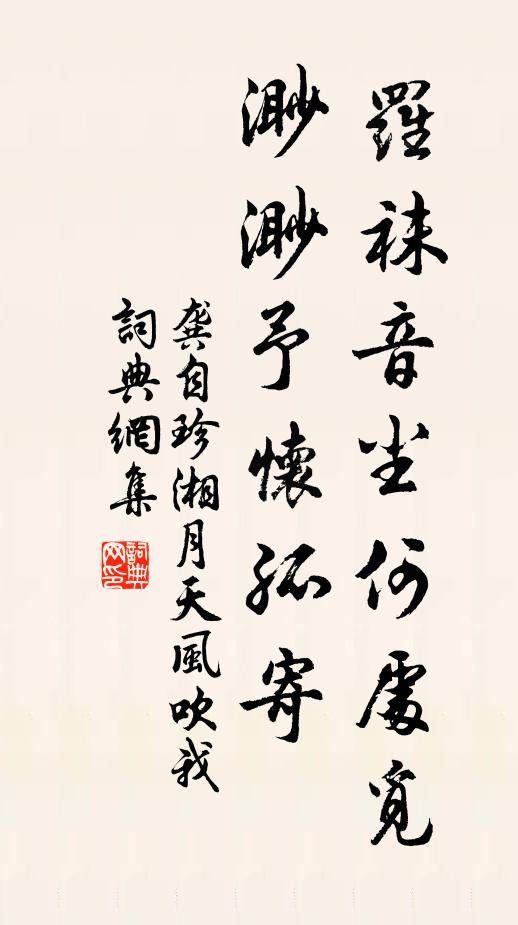 羅袜音尘何處覓
渺渺予懷孤寄
龔自珍湘月天風吹我
詞典網集
詞典网印